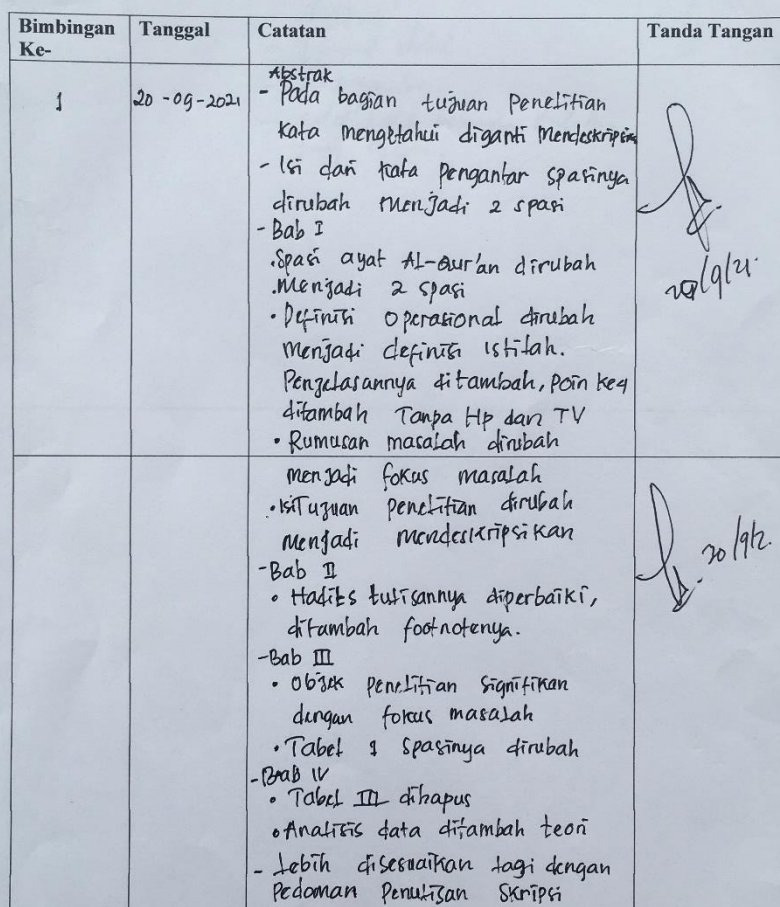 Bimbingan Ke-
Tanggal
Catatan
Tanda Tangan
1
20-09-2021
Abstrak
- Pada bagian tujuan Penelitian
kata mengetahui diganti Mendeskripsikan
- Isi dari kata pengantar spasinya
dirubah menjadi 2 spasi
- Bab I
•Spasi ayat Al-Qur'an dirubah
•menjadi 2 spasi
• Definisi Operasional dirubah
menjadi definisi istilah.
Penjelasannya ditambah, Poin ke4
ditambah Tanpa Hp dan TV
• Rumusan masalah dirubah
20/9/21
menjadi fokus masalah
•isi Tujuan penelitian dirubah
menjadi mendeskripsikan
-Bab II
• Hadits tulisannya diperbaiki,
ditambah footnotenya.
-Bab III
• Objek penelitian signifikan
dengan fokus masalah
• Tabel 1 spasinya dirubah
- Bab IV
• Tabel III dihapus
• Analisis data ditambah teori
- Lebih disesuaikan lagi dengan
Pedoman Penulisan Skripsi
20/9/2.